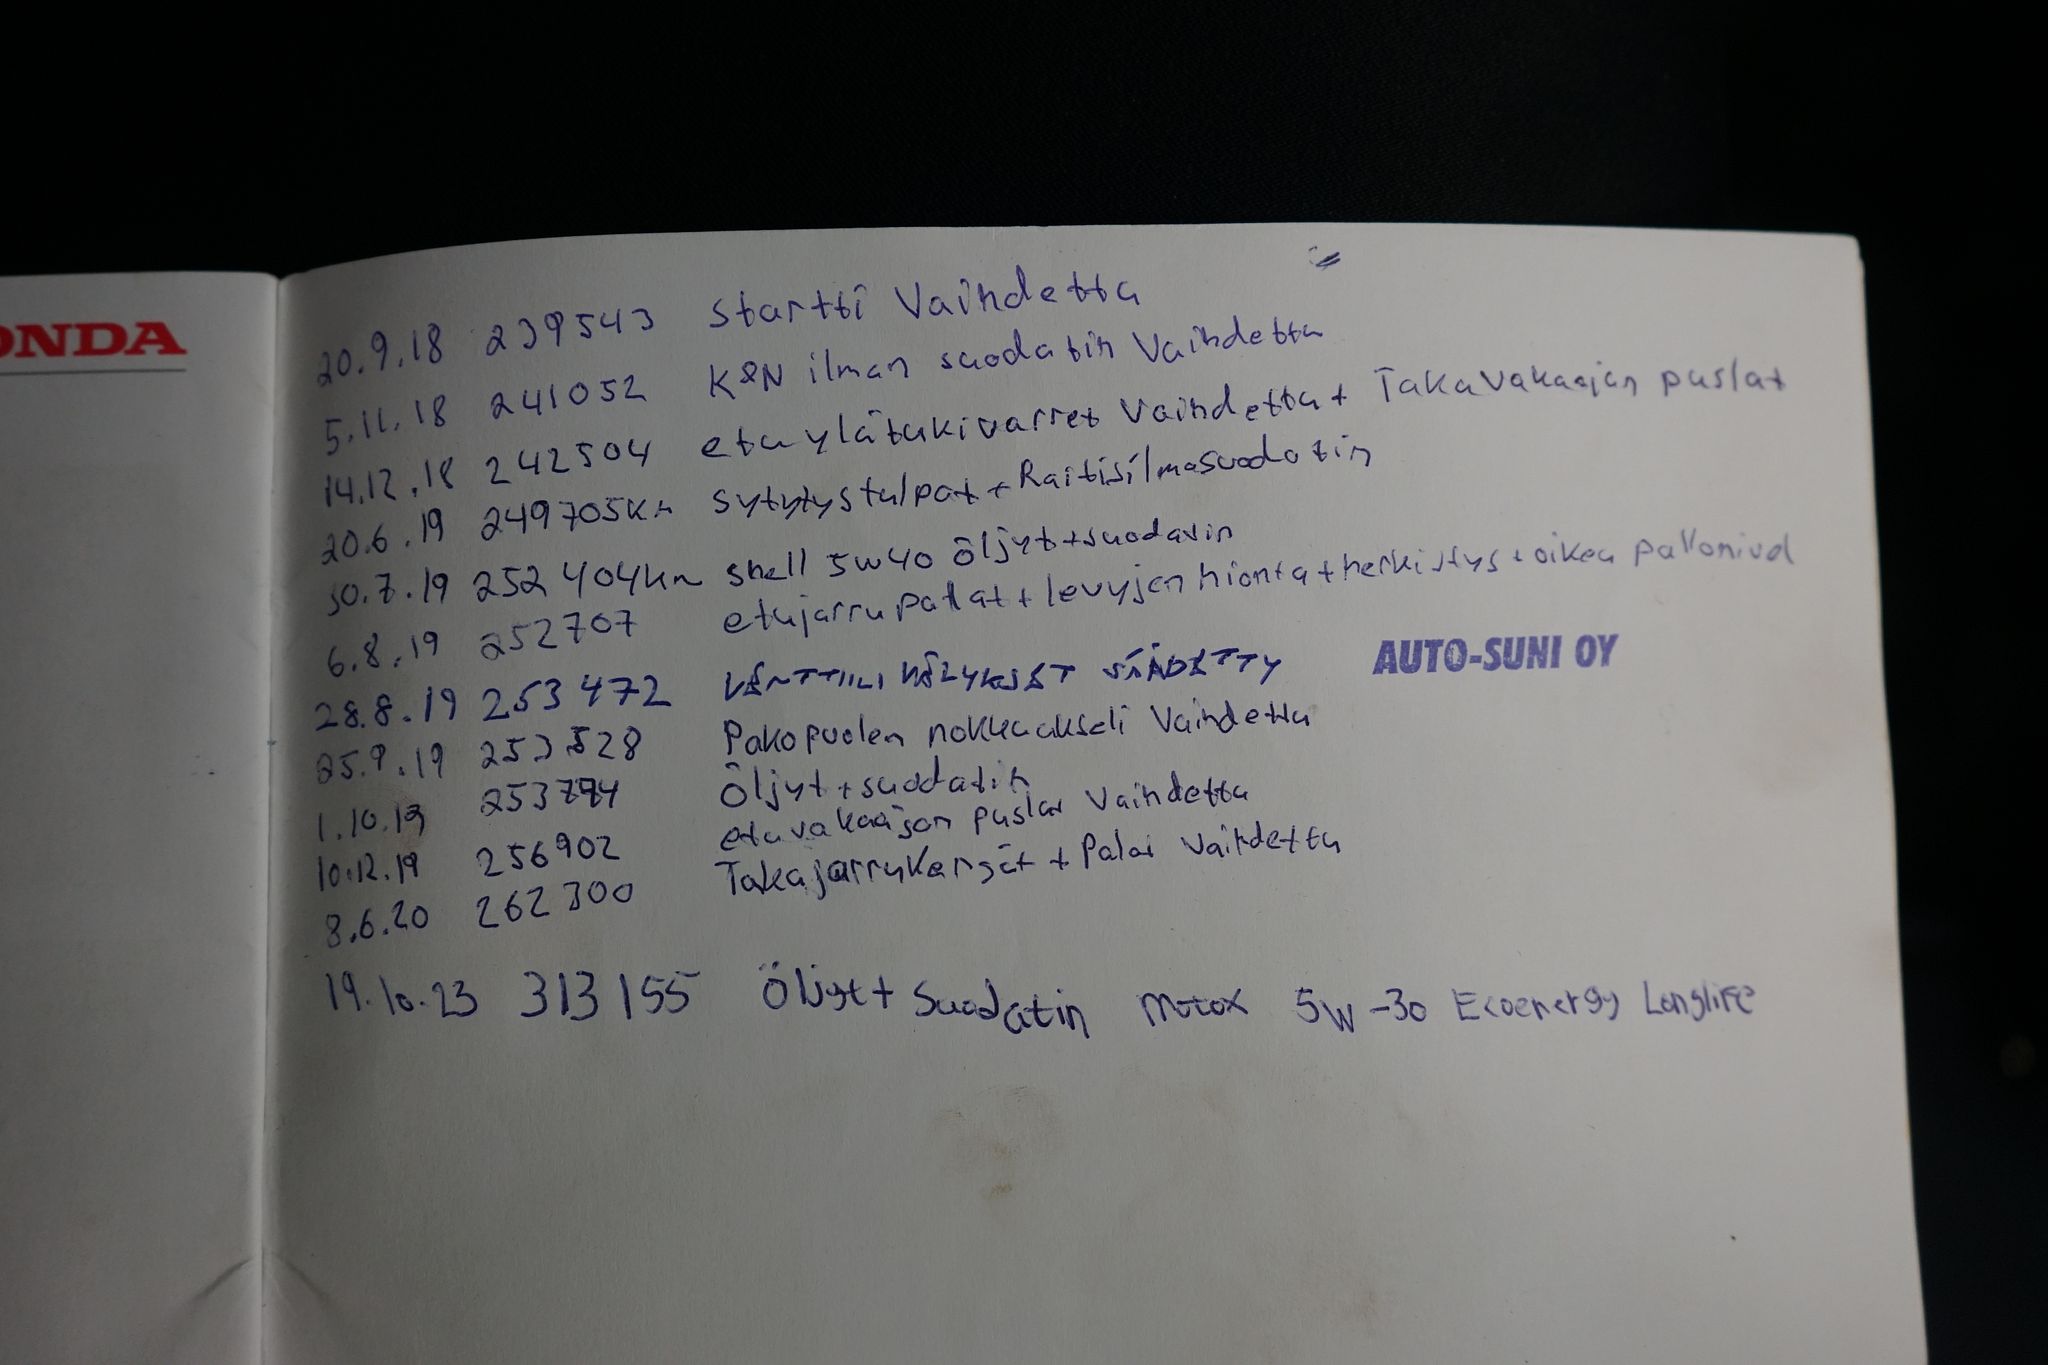 ONDA
20.9.18 239543 startti Vaihdettu
5.11.18 241052 K&N ilman suodatin Vaihdettu
14.12.18 242504 etu ylätukivarret Vaihdettu + Takavakaajan puslat
20.6.19 249705km sytytystulpat + Raitisilmasuodatin
30.7.19 252404km shell 5w40 Öljyt + suodatin
6.8.19 252707 etujarrupalat + levyjen hionta + herkistys + oikea pallonivel
28.8.19 253472 VENTTIILI VÄLYKSET SÄÄDETTY AUTO-SUNI OY
25.9.19 253528 Pakopuolen nokkaakseli Vaihdettu
1.10.19 Öljyt + suodatin
10.12.19 256902 etuvakaajan puslat Vaihdettu
8.6.20 262300 Takajarrukengät + Palat Vaihdettu
19.10.23 313155 Öljyt + Suodatin Motox 5W-30 Ecoenergy Longlife